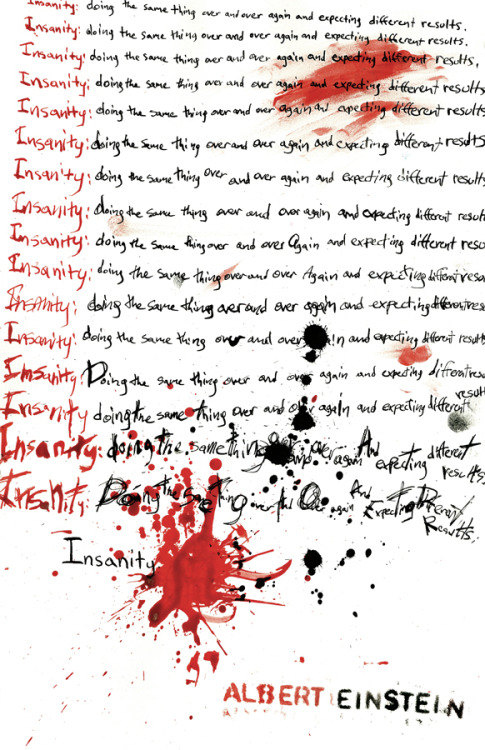 Insanity: doing the same thing over and over again and expecting different results.
Insanity: doing the same thing over and over again and expecting different results.
Insanity: doing the same thing over and over again and expecting different results,
Insanity: doing the same thing over and over again and expecting different results.
Insanity: doing the same thing over and over again and expecting different results
Insanity: doing the same thing over and over again and expecting different results
Insanity: doing the same thing over and over again and expecting different results
Insanity: doing the same thing over and over again and expecting different result
Insanity: doing the same thing over and over Again and expecting different resu
Insanity: doing the same thing over and over Again and expecting different resu
Insanity: doing the same thing over and over again and expecting different resu
Insanity: doing the same thing over and over and expecting different result
Insanity: Doing the same thing over and over again and expecting different
result
Insanity doing the same thing over and over again and expecting different
Insanity: doing the same thing over again And expecting different results,
Insanity Doing the Same thing over and Over again And Expecting Different Results.
Insanity
ALBERT EINSTEIN